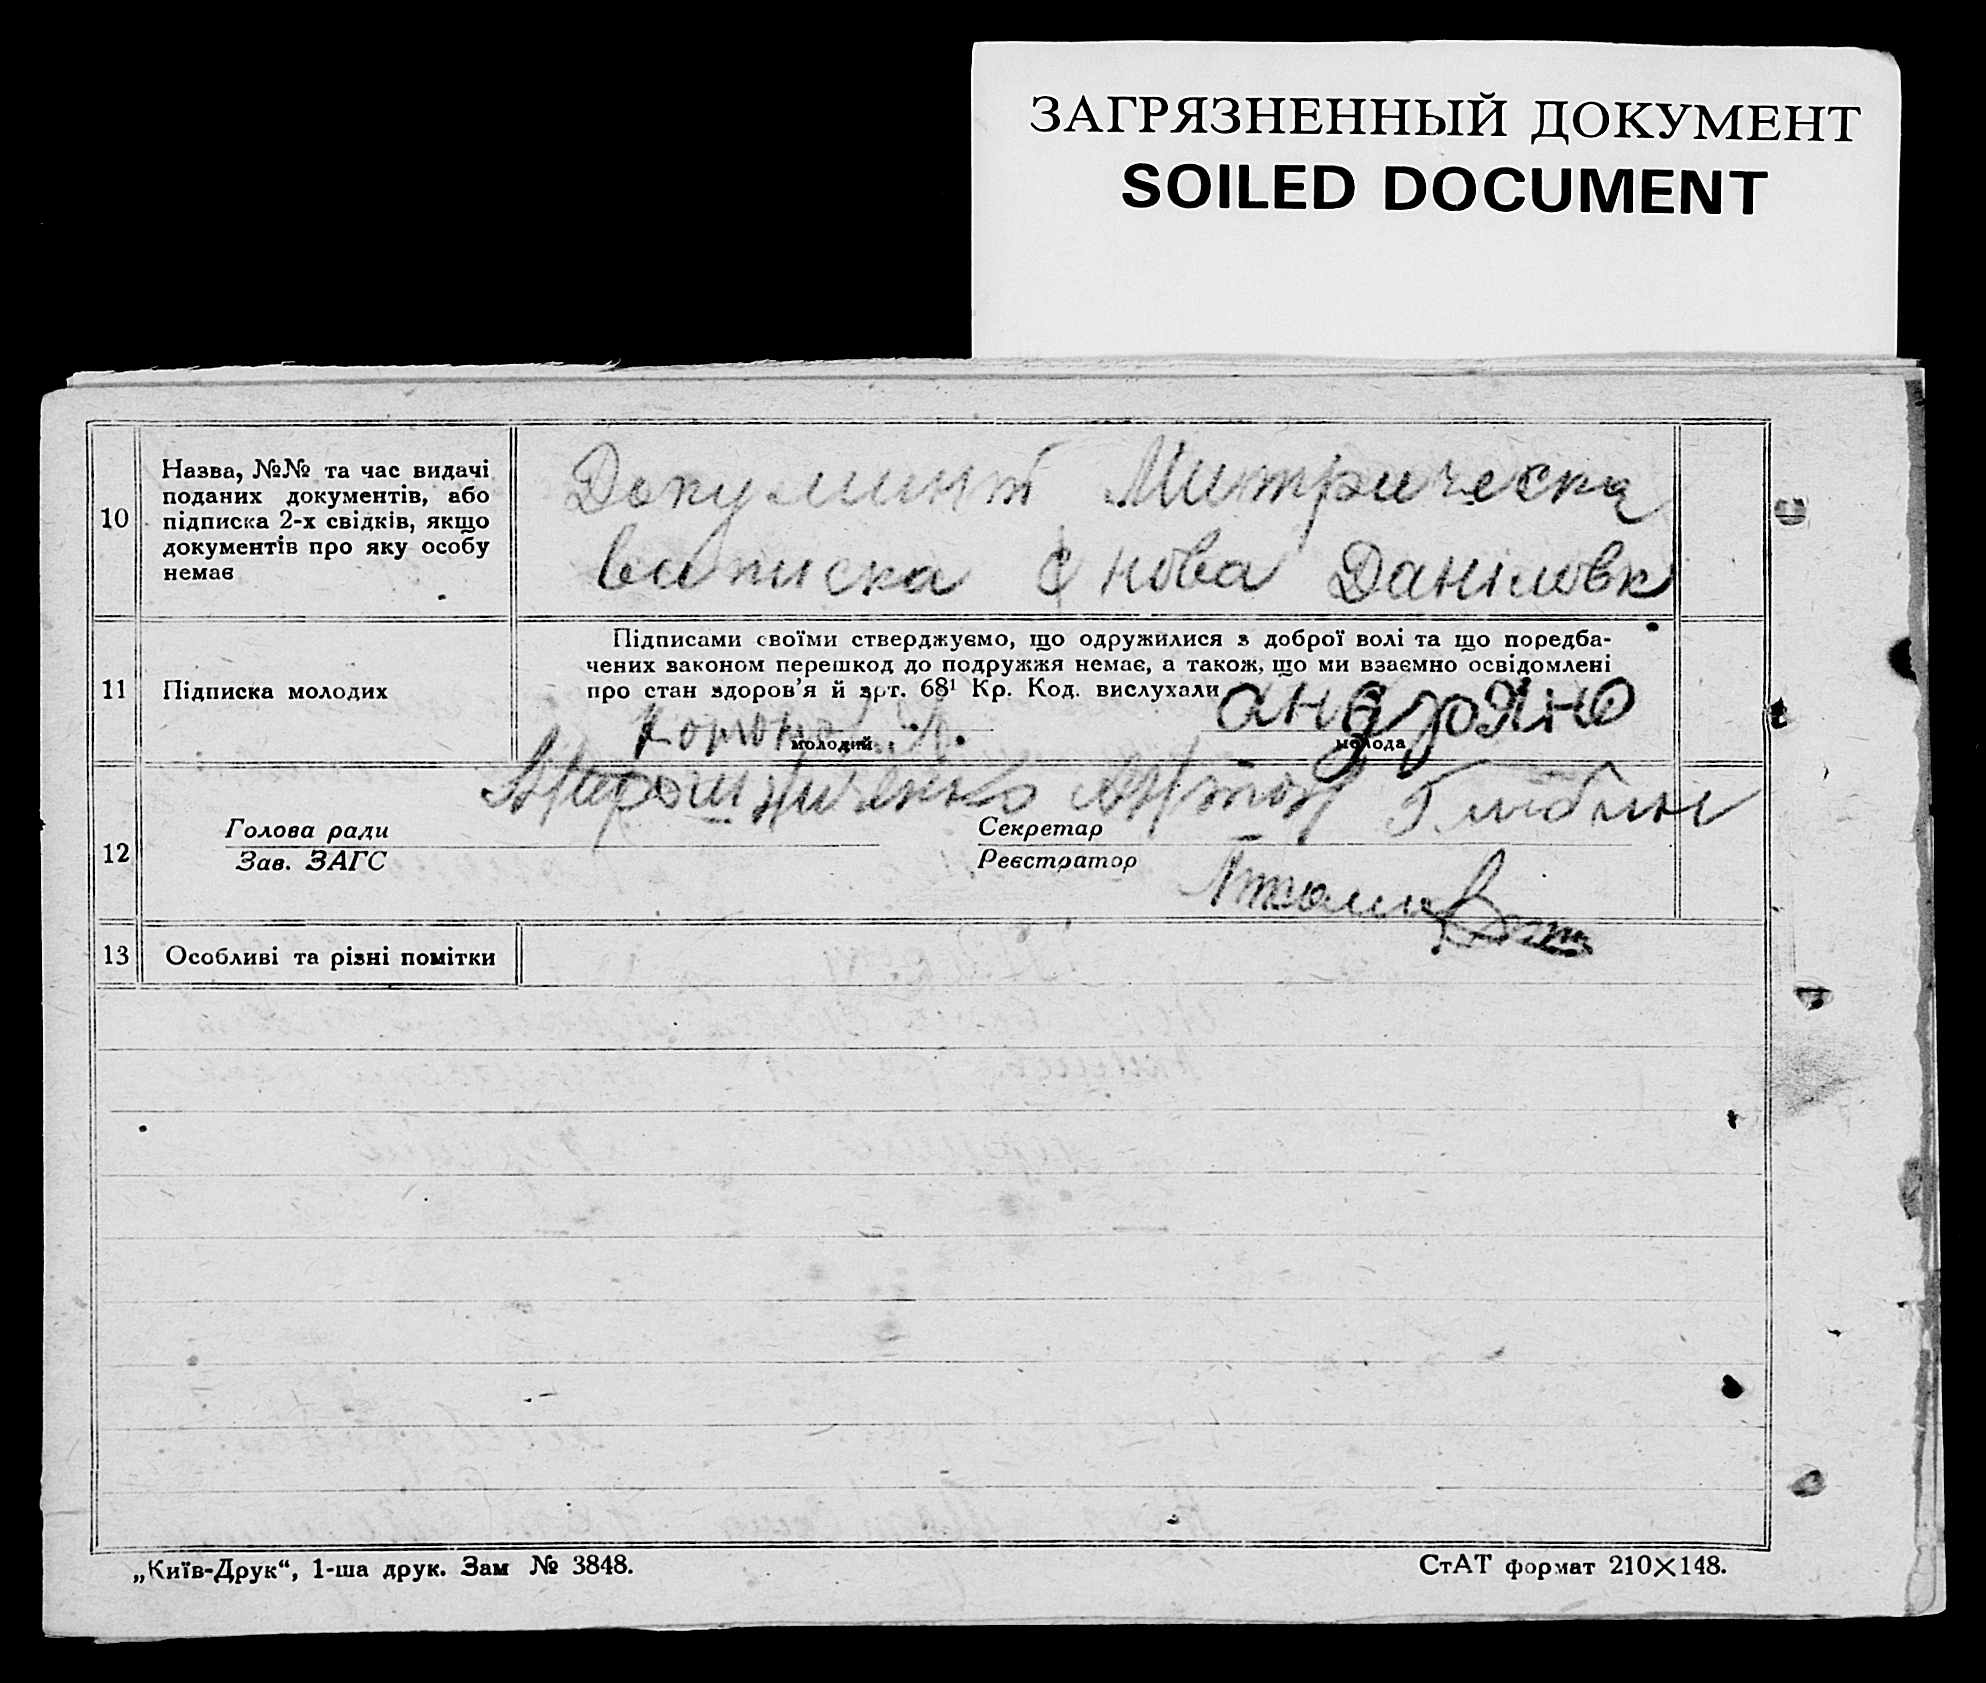 ЗАГРЯЗНЕННЫЙ ДОКУМЕНТ
SOILED DOCUMENT
10
Назва, №№ та час видачі
поданих документів, або
підписка 2-х свідків, якщо
документів про яку особу
немає
Докуминт Митрическа
виписка с нова Даніловк
11
Підписка молодих
Підписами своїми стверджуємо, що одружилися з доброї волі та що поредба-
чених законом перешкод до подружжя немає, а також, що ми взаємно освідомлені
про стан здоров'я й арт. 68¹ Кр. Код. вислухали
молодий
молода
12
Антон
Голова ради
Зав. ЗАГС
Секретар
Реєстратор
13
Особливі та різні помітки
„Київ-Друк“, 1-ша друк. Зам № 3848.
СтАТ формат 210×148.